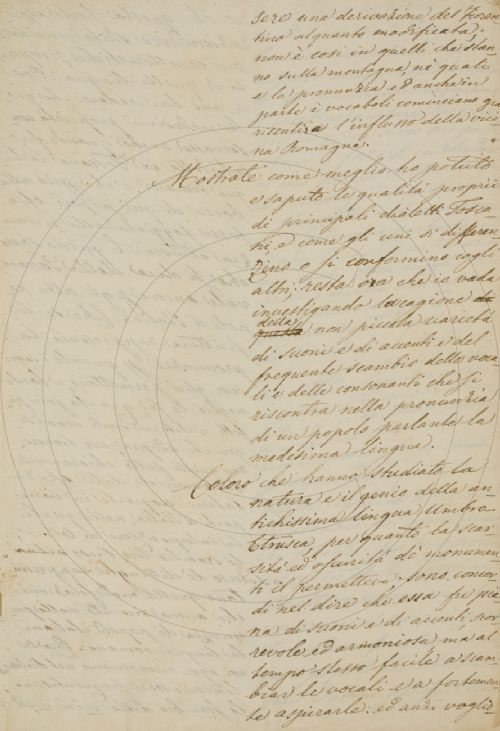 sere una derivazione del Fioren-
tino alquanto modificata;
non è così in quelli che stan-
no sulla montagna, ne' quali
e la pronunzia ed anche in
parte i vocaboli cominciano già
risentire l'influsso della vici-
na Romagna.
Mostrate come meglio ho potuto
e saputo le qualità proprie
di principali dialetti Tosca-
ni, e come gli uni si differen-
zino o si conformino cogli
altri; resta ora che io vada
investigando la cagione
della non piccola varietà
di suoni e di accenti e del
frequente scambio delle voca-
li e delle consonanti che si
riscontra nella pronunzia
di un popolo parlante la
medesima lingua.
Coloro che hanno studiato la
natura e il genio della an-
tichissima lingua Umbro-
Etrusca, per quanto la scar-
sità ed oscurità de' monumen-
ti il permetteva, sono concor-
di nel dire che essa fu pie-
na di suoni e di accenti scor-
revole, ed armoniosa, ma al
tempo stesso facile a scam-
biar le vocali e a fortemen-
te aspirarle: ed anzi voglio-